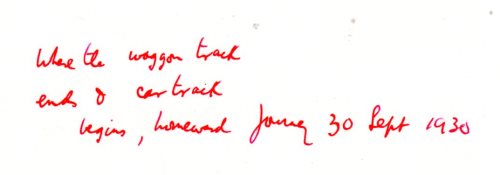 Where the waggon track
ends & car track
begins, homeward Journey 30 Sept 1930